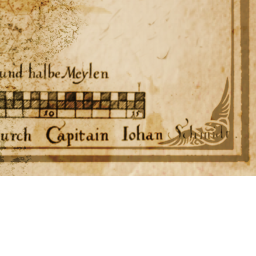 und halbe Meylen
10 15
urch Capitain Iohan Schmidt